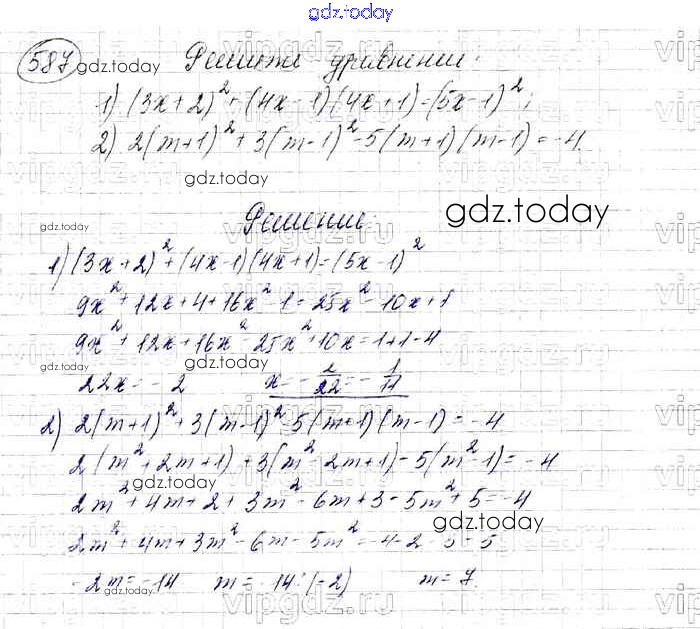 gdz.today
587 gdz.today Решите уравнения:
1) (3x+2)² + (4x-1)(4x+1) = (5x-1)²;
2) 2(m+1)² + 3(m-1)² - 5(m+1)(m-1) = -4.
gdz.today
Решение gdz.today
gdz.today
1) (3x+2)² + (4x-1)(4x+1) = (5x-1)²
9x² + 12x + 4 + 16x² - 1 = 25x² - 10x + 1
9x² + 12x + 16x² - 25x² + 10x = 1 + 1 - 4
gdz.today gdz.today
22x = -2 x = -2/22 = -1/11
2) 2(m+1)² + 3(m-1)² - 5(m+1)(m-1) = -4
2(m² + 2m + 1) + 3(m² - 2m + 1) - 5(m² - 1) = -4
2m² + 4m + 2 + 3m² - 6m + 3 - 5m² + 5 = -4
gdz.today
2m² + 4m + 3m² - 6m - 5m² = -4 - 2 - 3 - 5
-2m = -14 m = -14 : (-2) m = 7.
gdz.today
vipgdz.ru